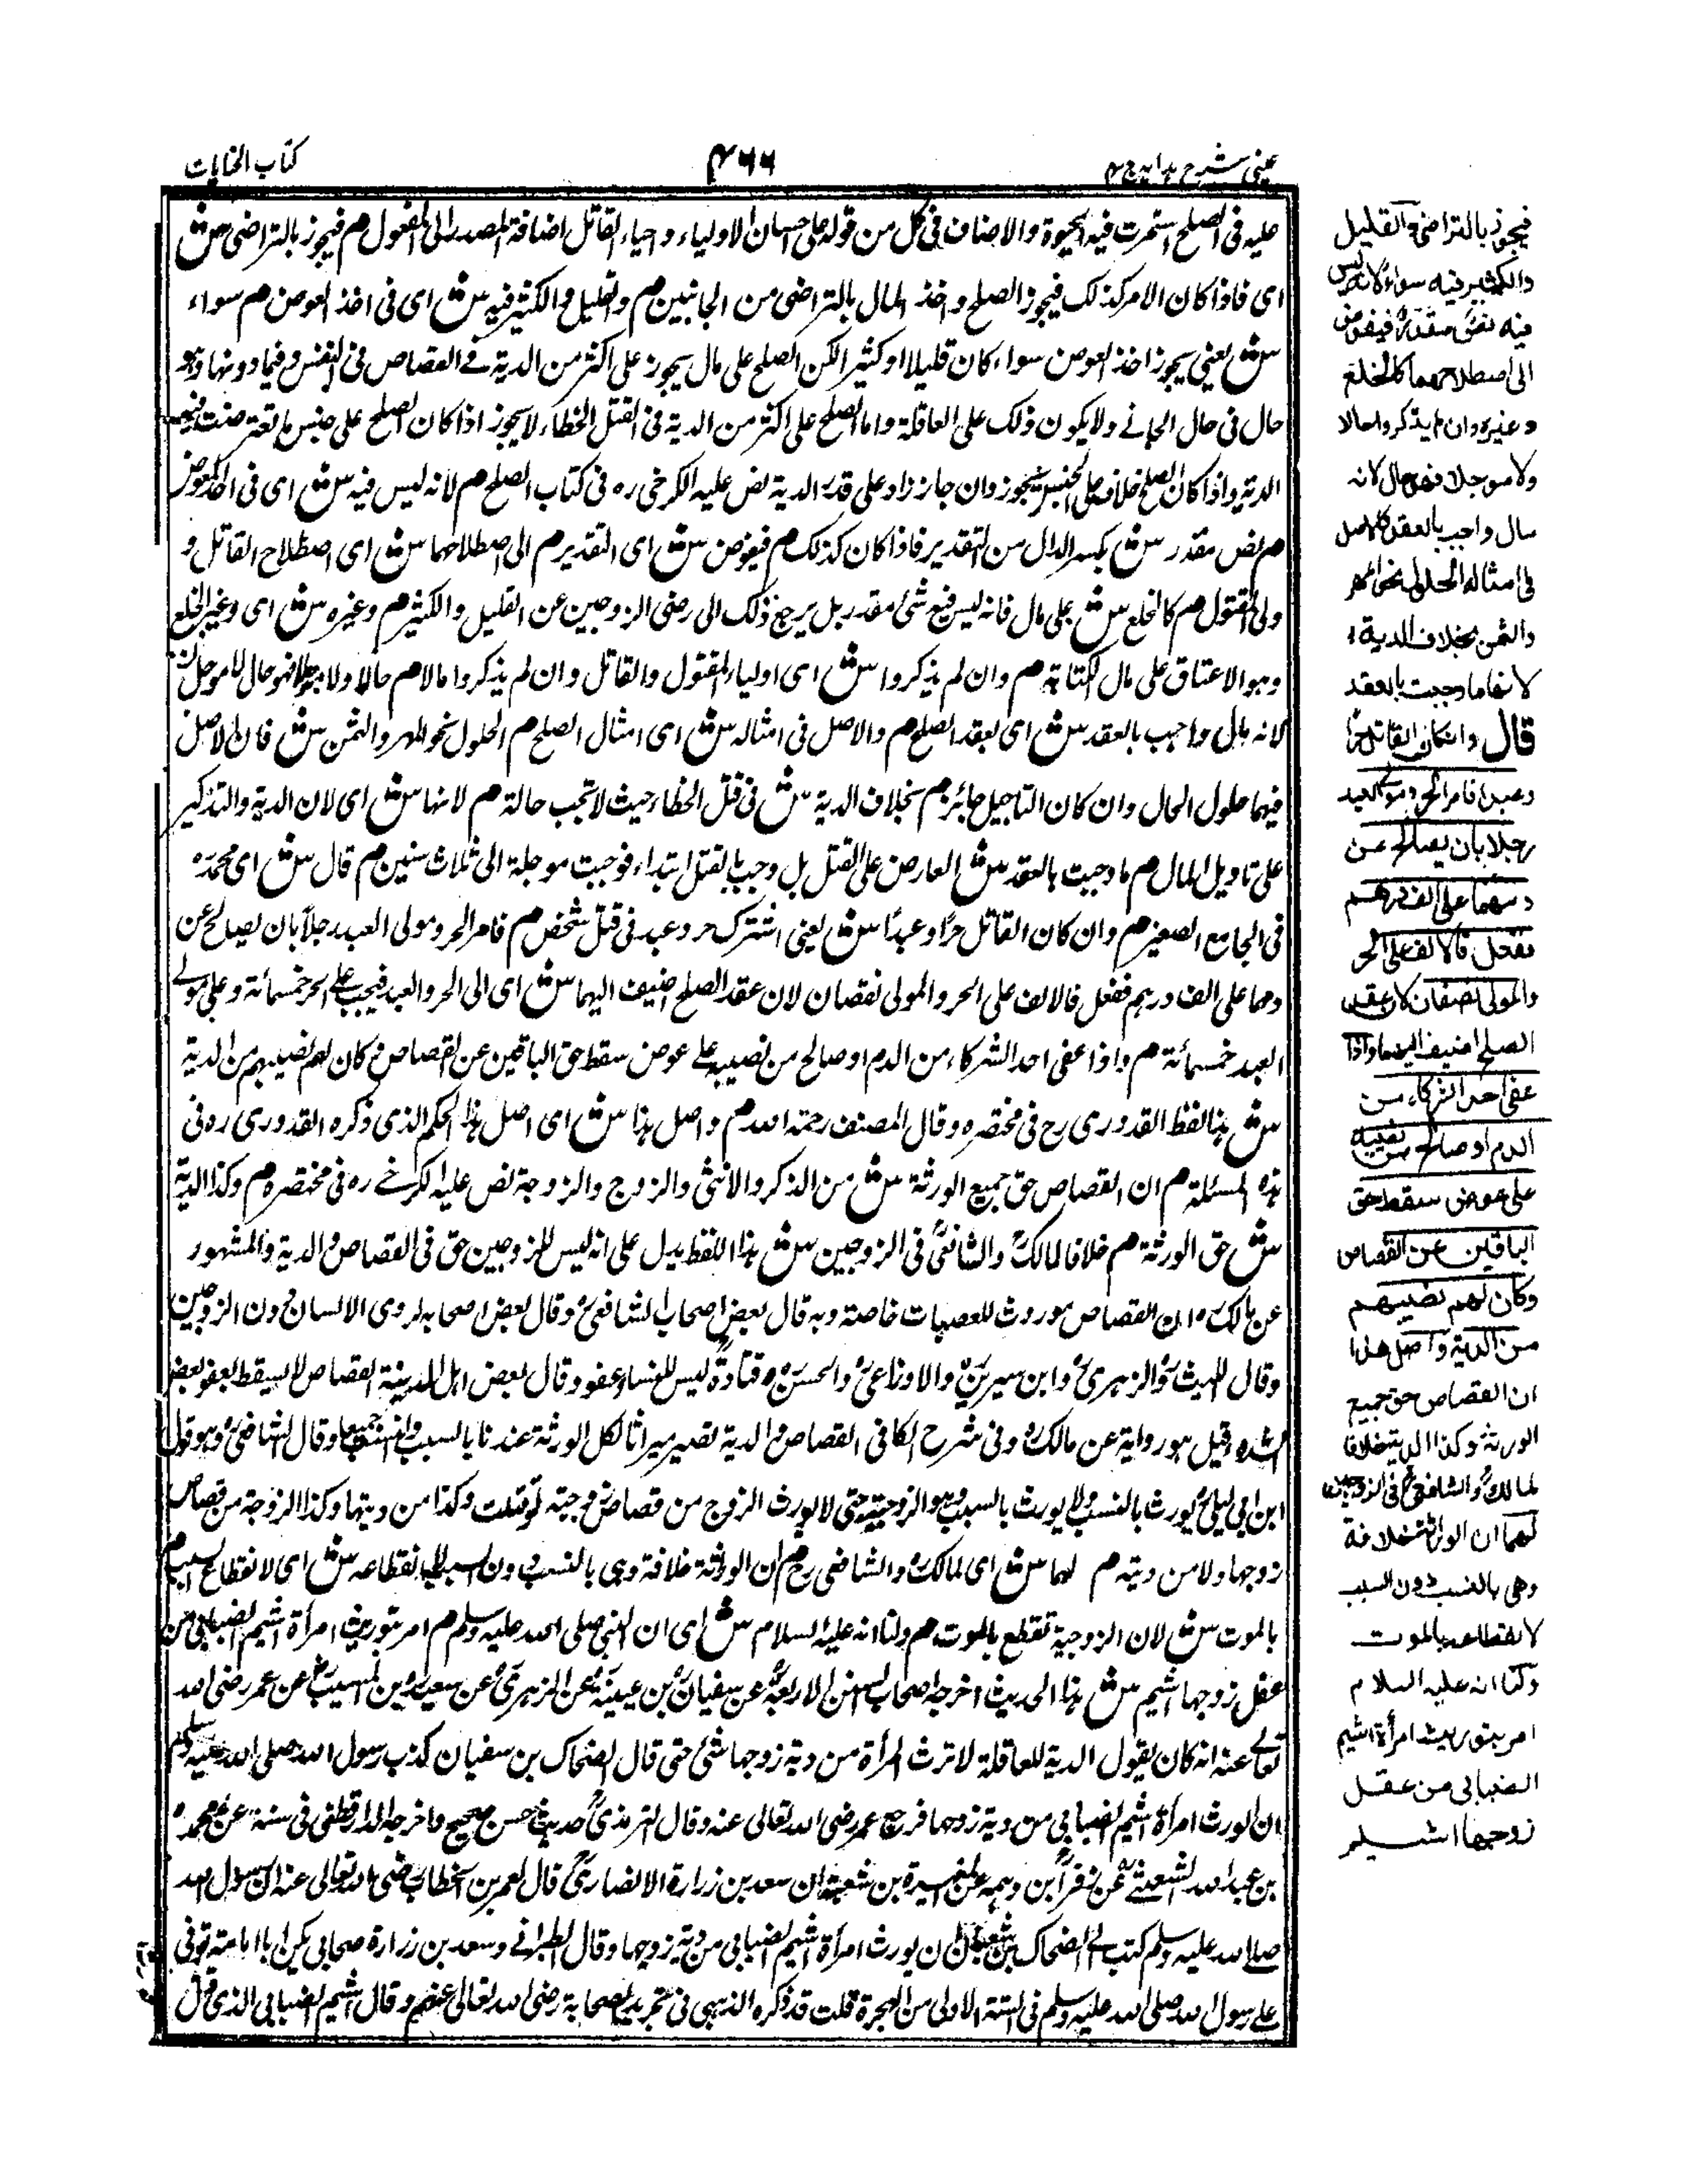 عينى شرح هدايه ج ٤
٤٦٦
كتاب الجنايات
عليه فى الصلح استمرت فيه الحيوة والاضاف فى كل من قوله على احسان الاولياء واحياء القاتل اضافة المصدر الى المفعول م فيجوز بالتراضى ش
اى فاذا كان الامر كذلك فيجوز الصلح واخذ المال بالتراضى من الجانبين م والقليل والكثير فيه ش اى فى اخذ العوض م سواء
ش يعنى يجوز اخذ العوض سواء كان قليلا او كثيرا لكن الصلح على مال يجوز على اكثر من الدية فى القصاص فى النفس وفيما دونها وهو
حال فى حال الجانى ولا يكون ذلك على العاقلة واما الصلح على اكثر من الدية فى القتل الخطاء لا يجوز اذا كان الصلح على جنس ما
الدية واذا كان الصلح خلاف على الجنس يجوز وان جاز زاد على قدر الدية نص عليه الكرخى ره فى كتاب الصلح م لانه ليس فيه ش اى فى اخذ العوض
م نص مقدر ش بكسر الدال من التقدير فاذا كان كذلك م فيفوض ش اى التقدير م الى اصطلاحهما ش اى اصطلاح القاتل و
ولى المقتول م كالخلع ش على مال فانه ليس فيه شئ مقدر بل يرجع ذلك الى رضى الزوجين عن القليل والكثير م وغيره ش اى وغير الخلع
وهو الاعتاق على مال الكتابة م وان لم يذكروا ش اى اولياء المقتول والقاتل وان لم يذكروا مالا م حالا ولا مؤجلا فهو حال لا مؤجل
لانه مال واجب بالعقد ش اى بعقد الصلح م والاصل فى امثاله ش اى امثال الصلح م الحلول نحو المهر والثمن ش فان الاصل
فيهما حلول الحال وان كان التاجيل جائز م بخلاف الدية ش فى قتل الخطاء حيث لا تجب حالة م لانها ش اى لان الدية والتذكير
على تاويل المال م ما وجبت بالعقد ش العارض على القتل بل وجب بالقتل ابتداء فوجبت موجلة الى ثلاث سنين م قال ش اى محمد ره
فى الجامع الصغير م وان كان القاتل حرًا وعبدًا ش يعنى اشترك حر وعبد فى قتل شخص م فامر الحر ومولى العبد رجلاً بان يصالح عن
دمهما على الف درهم ففعل فالالف على الحر والمولى نصفان لان عقد الصلح اضيف اليهما ش اى الى الحر والعبد فيجب على الحر خمسمائة وعلى مولى
العبد خمسمائة م واذا عفى احد الشركاء من الدم او صالح من نصيبه على عوض سقط حق الباقين عن القصاص و كان لهم نصيبهم من الدية
ش هذا لفظ القدورى رح فى مختصره وقال المصنف رحمة الله م واصل هذا ش اى اصل هذا الحكم الذى ذكره القدورى ره فى
هذه المسئلة م ان القصاص حق جميع الورثة ش من الذكر والانثى والزوج والزوجة نص عليه الكرخى ره فى مختصره م وكذا الدية
ش حق الورثة م خلافا لمالك والشافعى فى الزوجين ش هذا اللفظ يدل على انه ليس للزوجين حق فى القصاص والدية والمشهور
عن مالك ره ان القصاص موروث للعصبات خاصة وبه قال بعض اصحاب الشافعى وقال بعض اصحابه لذوى الانساب دون الزوجين
وقال الليث والزهرى وابن سيرين والاوزاعى والحسن وقتادة ليس للنساء عفو وقال بعض اهل المدينة القصاص لا يسقط بعفو بعض
قيل هو رواية عن مالك وفى شرح الكافى القصاص والدية تصير ميراثا لكل الورثة عندنا بالسبب والنسب جميعا وقال الشافعى وهو قول
ابن ابى ليلى يورث بالنسب ولا يورث بالسبب وهو الزوجية حتى لا يورث الزوج من قصاص زوجته لو قتلت وكذا من ديتها وكذا الزوجة من قصاص
زوجها ولا من ديته م لهما ش اى لمالك والشافعى رح م ان الوراثة خلافة وهى بالنسب دون السبب لانقطاعه ش اى لانقطاع السبب م
بالموت ش لان الزوجية تقطع بالموت م ولنا انه عليه السلام ش اى ان النبى صلى الله عليه وسلم م امر بتوريث امرأة اشيم الضبابى من
عقل زوجها اشيم ش هذا الحديث اخرجه اصحاب السنن الاربعة عن سفيان بن عيينة عن الزهرى عن سعيد بن المسيب عن عمر رضى الله
تعالى عنه انه كان يقول الدية للعاقلة لا ترث المرأة من دية زوجها شئ حتى قال الضحاك بن سفيان كتب رسول الله صلى الله عليه وسلم
ان اورث امرأة اشيم الضبابى من دية زوجها فرجع عمر رضى الله تعالى عنه وقال الترمذى حديث حسن صحيح واخرجه الدارقطنى فى سننه عن محمد
بن عبد الله الشعيثى عن زفر ابن وثيمه عن المغيرة بن شعبة ان سعد بن زرارة الانصارى قال لعمر بن الخطاب رضى الله تعالى عنه ان رسول الله
صلى الله عليه وسلم كتب الى الضحاك بن ان يورث امرأة اشيم الضبابى من دية زوجها وقال الطبرانى وسعد بن زرارة صحابى يكنى ابا امامته توفى
على رسول الله صلى الله عليه وسلم فى السنة الاولى من الهجرة قلت قد ذكره الذهبى فى تجريد الصحابة رضى الله تعالى عنهم وقال اشيم الضبابى الذى قتل
فيجوز بالتراضى والقليل
والكثير فيه سواء لانه ليس
فيه نص مقدر فيفوض
الى اصطلاحهما كالخلع
وغيره وان لم يذكروا حالا
ولا موجلا فهو حال لانه
مال واجب بالعقد والاصل
فى امثاله الحلول نحو المهر
والثمن بخلاف الدية
لانها ما وجبت بالعقد
قال وان كان القاتل حرا
وعبدا فامر الحر ومولى العبد
رجلا بان يصالح عن
دمهما على الف درهم
ففعل فالالف على الحر
والمولى نصفان لان عقد
الصلح اضيف اليهما واذا
عفى احد الشركاء من
الدم او صالح من نصيبه
على عوض سقط حق
الباقين عن القصاص
وكان لهم نصيبهم
من الدية واصل هذا
ان القصاص حق جميع
الورثة وكذا الدية خلافا
لمالك والشافعى فى الزوجين
لهما ان الوراثة خلافة
وهى بالنسب دون السبب
لانقطاعه بالموت
ولنا انه عليه السلام
امر بتوريث امرأة اشيم
الضبابى من عقل
زوجها اشيم